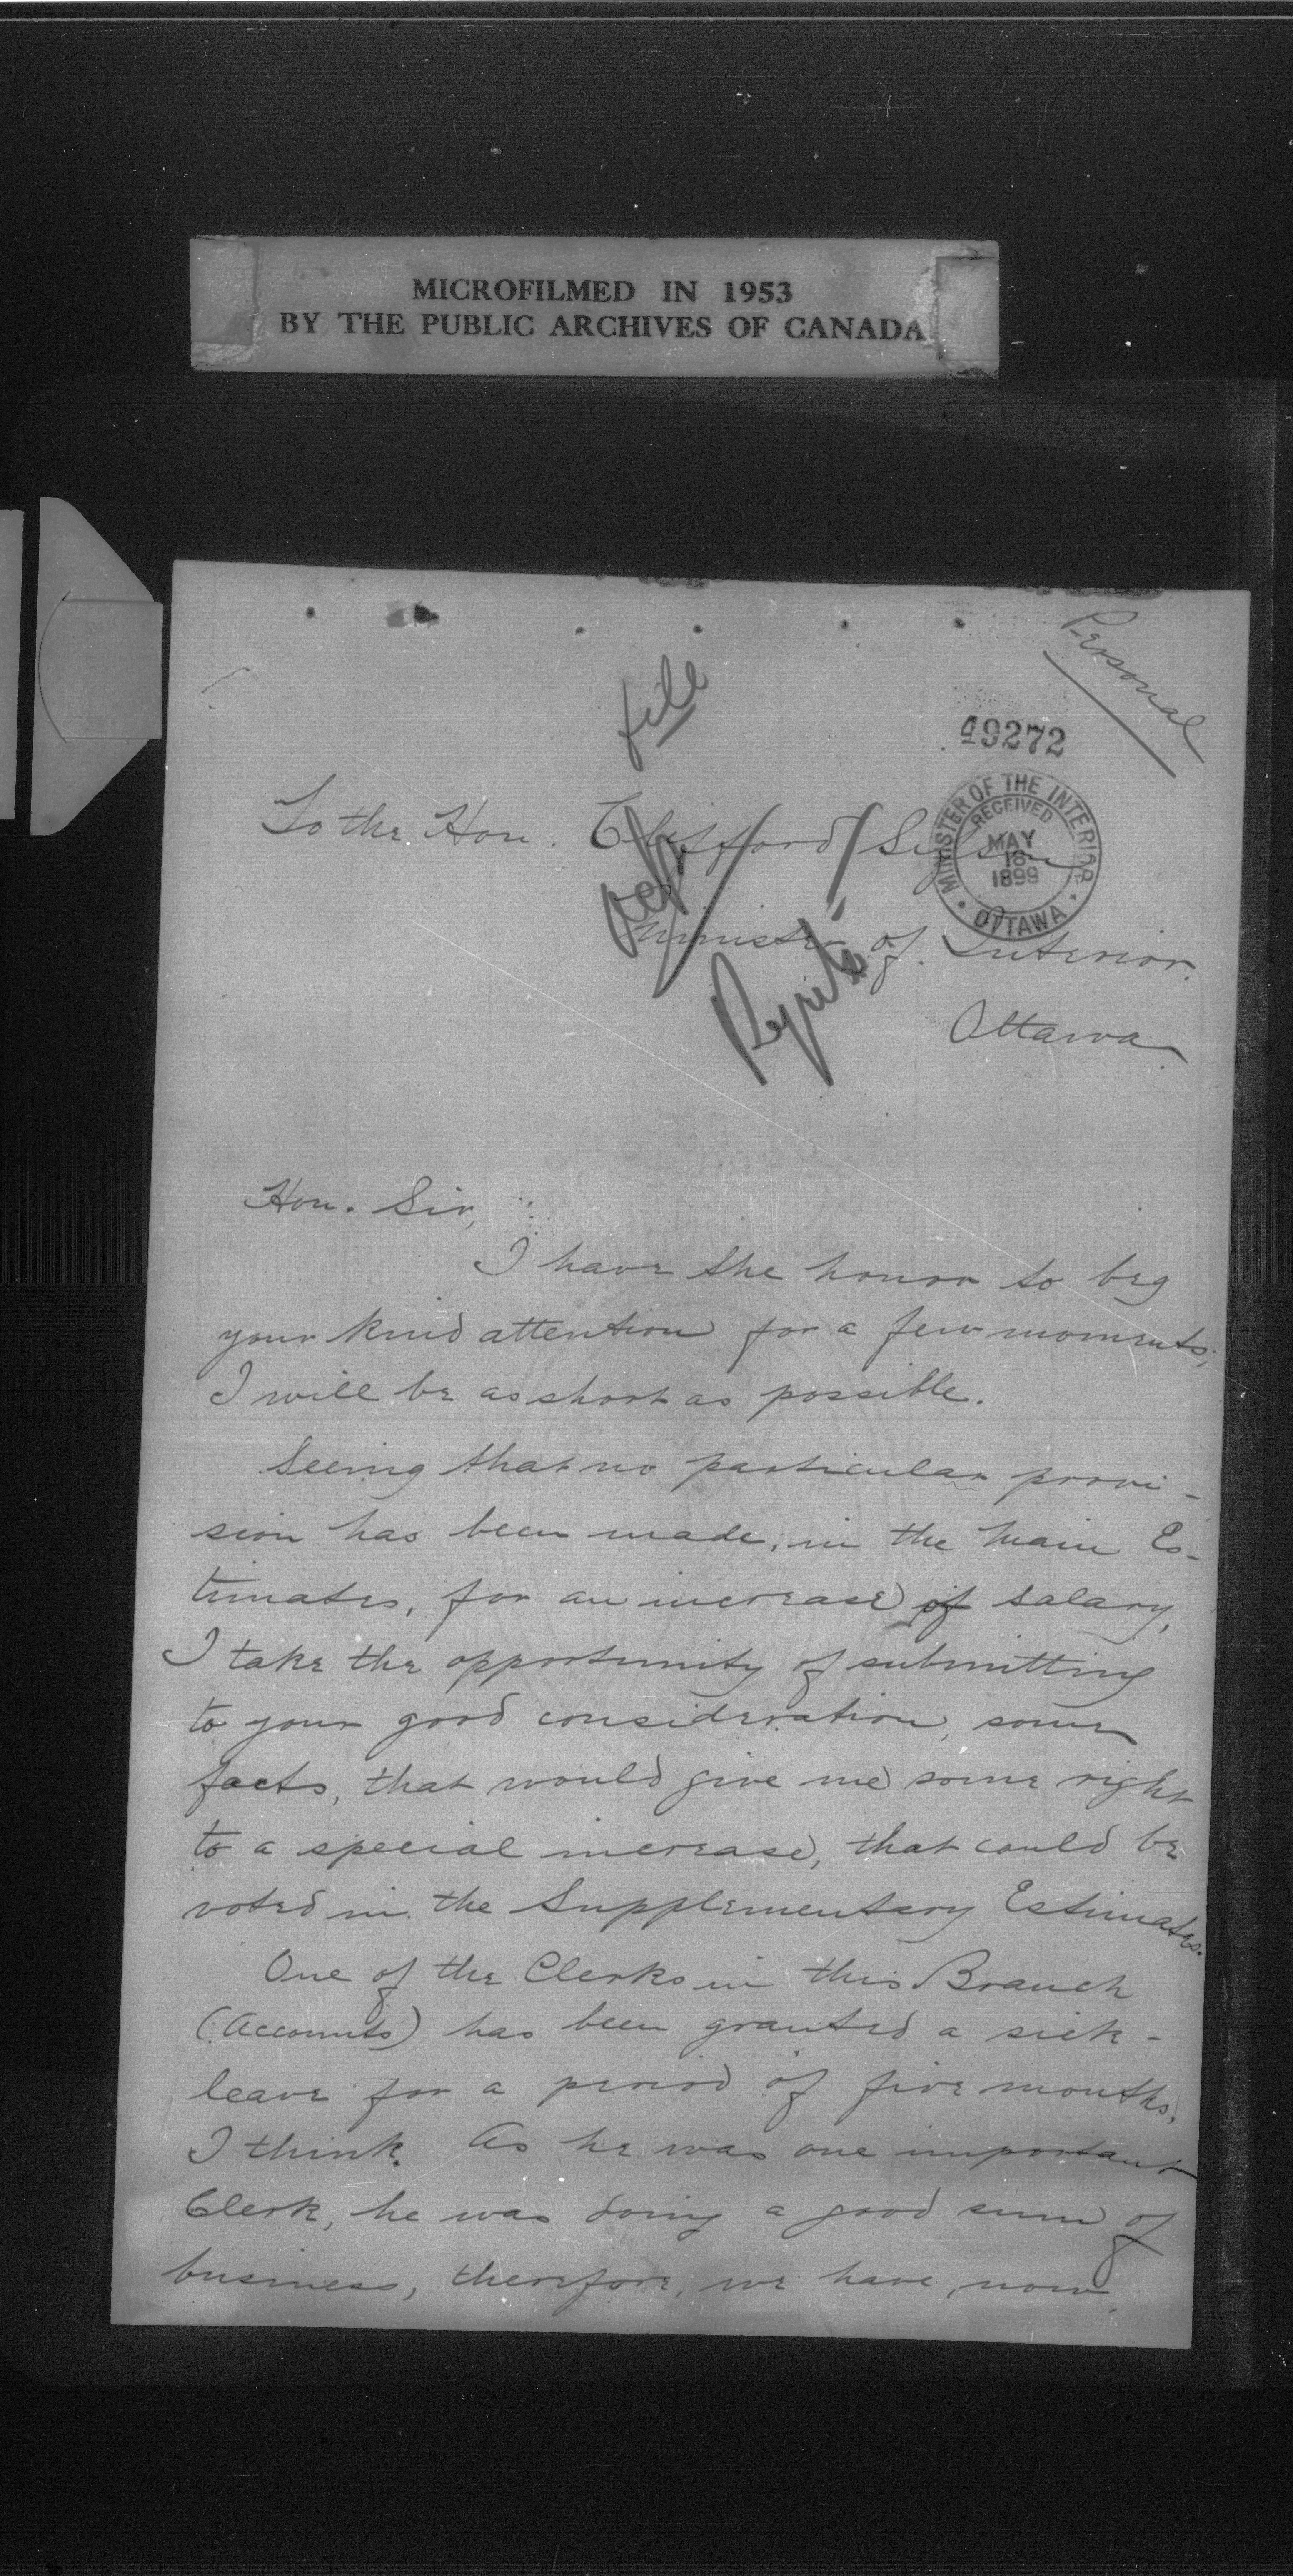 MICROFILMED IN 1953
BY THE PUBLIC ARCHIVES OF CANADA
Personal
file
49272
MINISTER OF THE INTERIOR
RECEIVED
MAY
16
1899
OTTAWA
To the Hon. Clifford Sifton
Minister of Interior.
Ottawa.
Hon. Sir,
I have the honor to beg
your kind attention for a few moments;
I will be as short as possible.
Seeing that no particular provi-
sion has been made, in the Main Es-
timates, for an increase of salary,
I take the opportunity of submitting
to your good consideration, some
facts, that would give me some right
to a special increase, that could be
voted in the Supplementary Estimates.
One of the Clerks in this Branch
(Accounts) has been granted a sick-
leave for a period of five months,
I think. As he was one important
Clerk, he was doing a good sum of
business, therefore, we have, now,